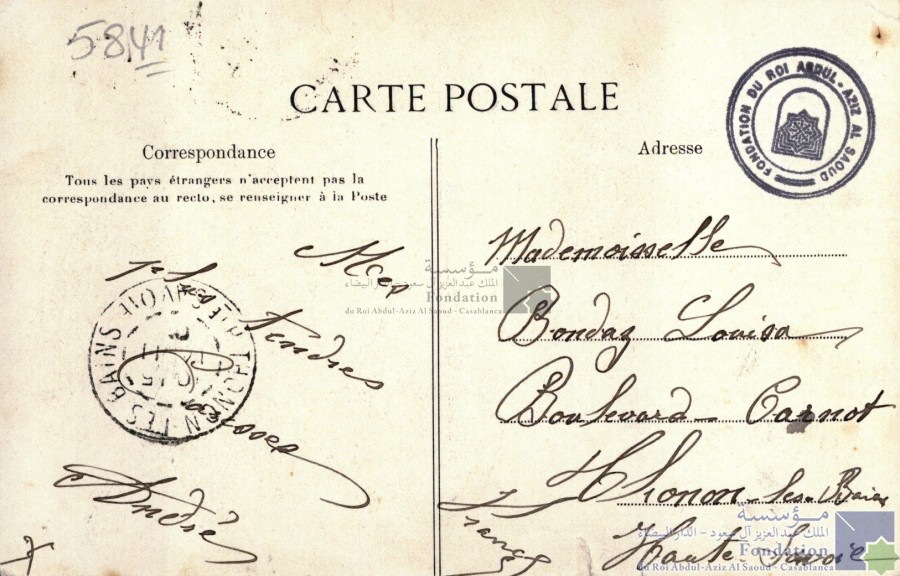 5841
CARTE POSTALE
FONDATION DU ROI ABDUL-AZIZ AL SAOUD
Correspondance
Tous les pays étrangers n'acceptent pas la
correspondance au recto, se renseigner à la Poste
Adresse
Tendres
André
THONON LES BAINS
Mademoisselle
Bondaz Louisa
Boulevard Carnot
Thonon-les-Bains
Haute Savoie
France
مؤسسة
الملك عبد العزيز آل سعود - الدار البيضاء
Fondation
du Roi Abdul-Aziz Al Saoud - Casablanca
مؤسسة
الملك عبد العزيز آل سعود - الدار البيضاء
Fondation
du Roi Abdul-Aziz Al Saoud - Casablanca